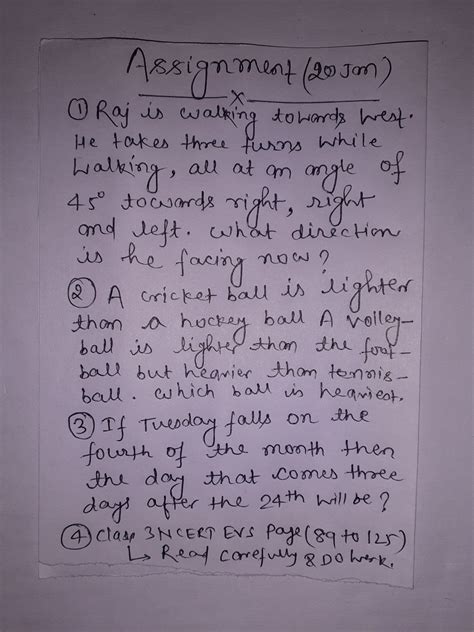 Assignment (20 Jan)
x
① Raj is walking towards west.
He takes three turns while
walking, all at an angle of
45° towards right, right
and left. What direction
is he facing now?
② A cricket ball is lighter
than a hockey ball A volley-
ball is lighter than the foot-
ball but heavier than tennis-
ball. Which ball is heaviest.
③ If Tuesday falls on the
fourth of the month then
the day that comes three
days after the 24th will be?
④ Class 3 NCERT EVS Page (89 to 125)
↳ Read carefully & DO work.